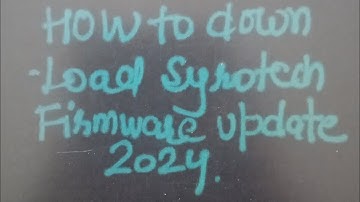 HOW to down
-Load Syrotech
Firmware update
2024.